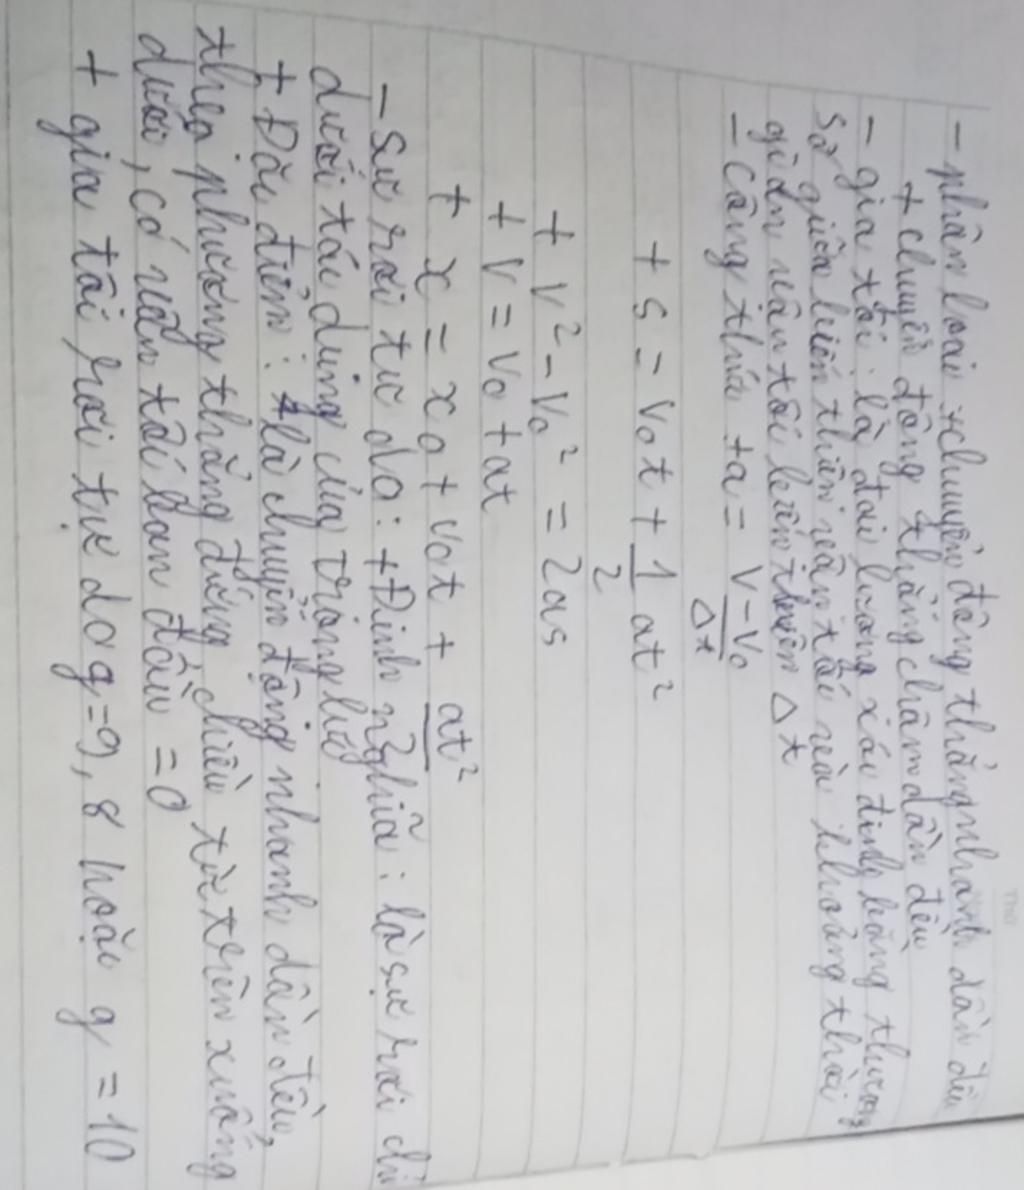 - phân loại + chuyển động thẳng nhanh dần đều
+ chuyển động thẳng chậm dần đều
- gia tốc: là đại lượng xác định bằng thương
số giữa biến thiên vận tốc và khoảng thời
gian vận tốc biến thiên Δt
- công thức + a = \frac{v - v₀}{Δt}
+ s = v₀t + \frac{1}{2} at²
+ v² - v₀² = 2as
+ v = v₀ + at
+ x = x₀ + v₀t + \frac{at²}{}
- Sự rơi tự do: + Định nghĩa: là sự rơi chỉ
dưới tác dụng của trọng lực
+ Đặc điểm: là chuyển động nhanh dần đều,
theo phương thẳng đứng, chiều từ trên xuống
dưới, có vận tốc ban đầu = 0
+ gia tốc rơi tự do g = 9,8 hoặc g = 10